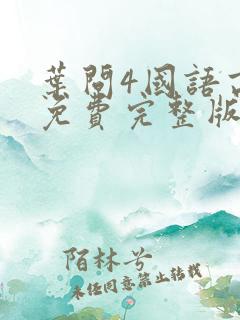 葉問4國語高
免費完整版
陌林兮
未经同意禁止转载